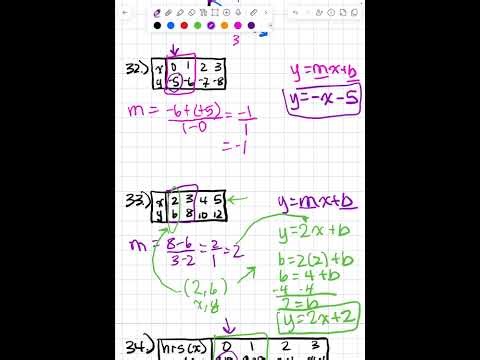 3
32.) x 0 1 2 3
y -5 -6 -7 -8
y=mx+b
y=-x-5
m = -6+(+5)/1-0 = -1/1
= -1
33.) x 2 3 4 5
y 6 8 10 12
y=mx+b
y=2x+b
m = 8-6/3-2 = 2/1 = 2
6=2(2)+b
6=4+b
-4 -4
2=b
(2,6)
x,y
y=2x+2
34.) hrs(x) 0 1 2 3